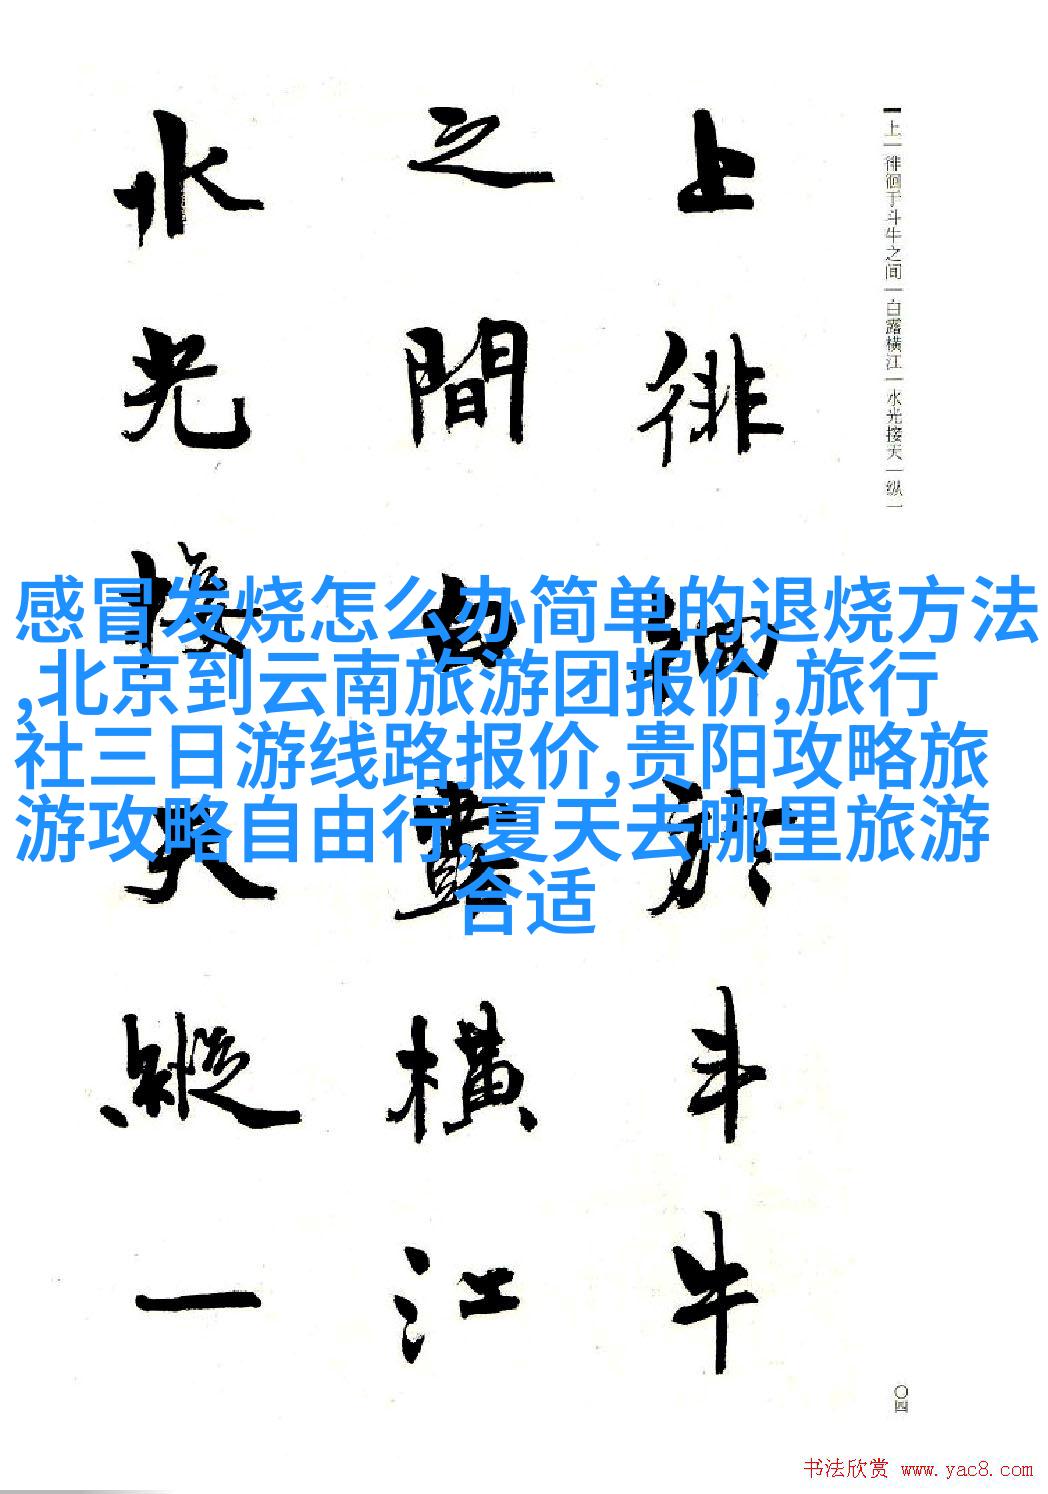 上｜徘徊于斗牛之间｜白露横江｜水光接天｜纵一
上徘徊於斗牛
之間白露橫江
水光接天縱一
感冒发烧怎么办简单的退烧方法
,北京到云南旅游团报价,旅行
社三日游线路报价,贵阳攻略旅
游攻略自由行,夏天去哪里旅游
合适
〇四
书法欣赏 www.yac8.com